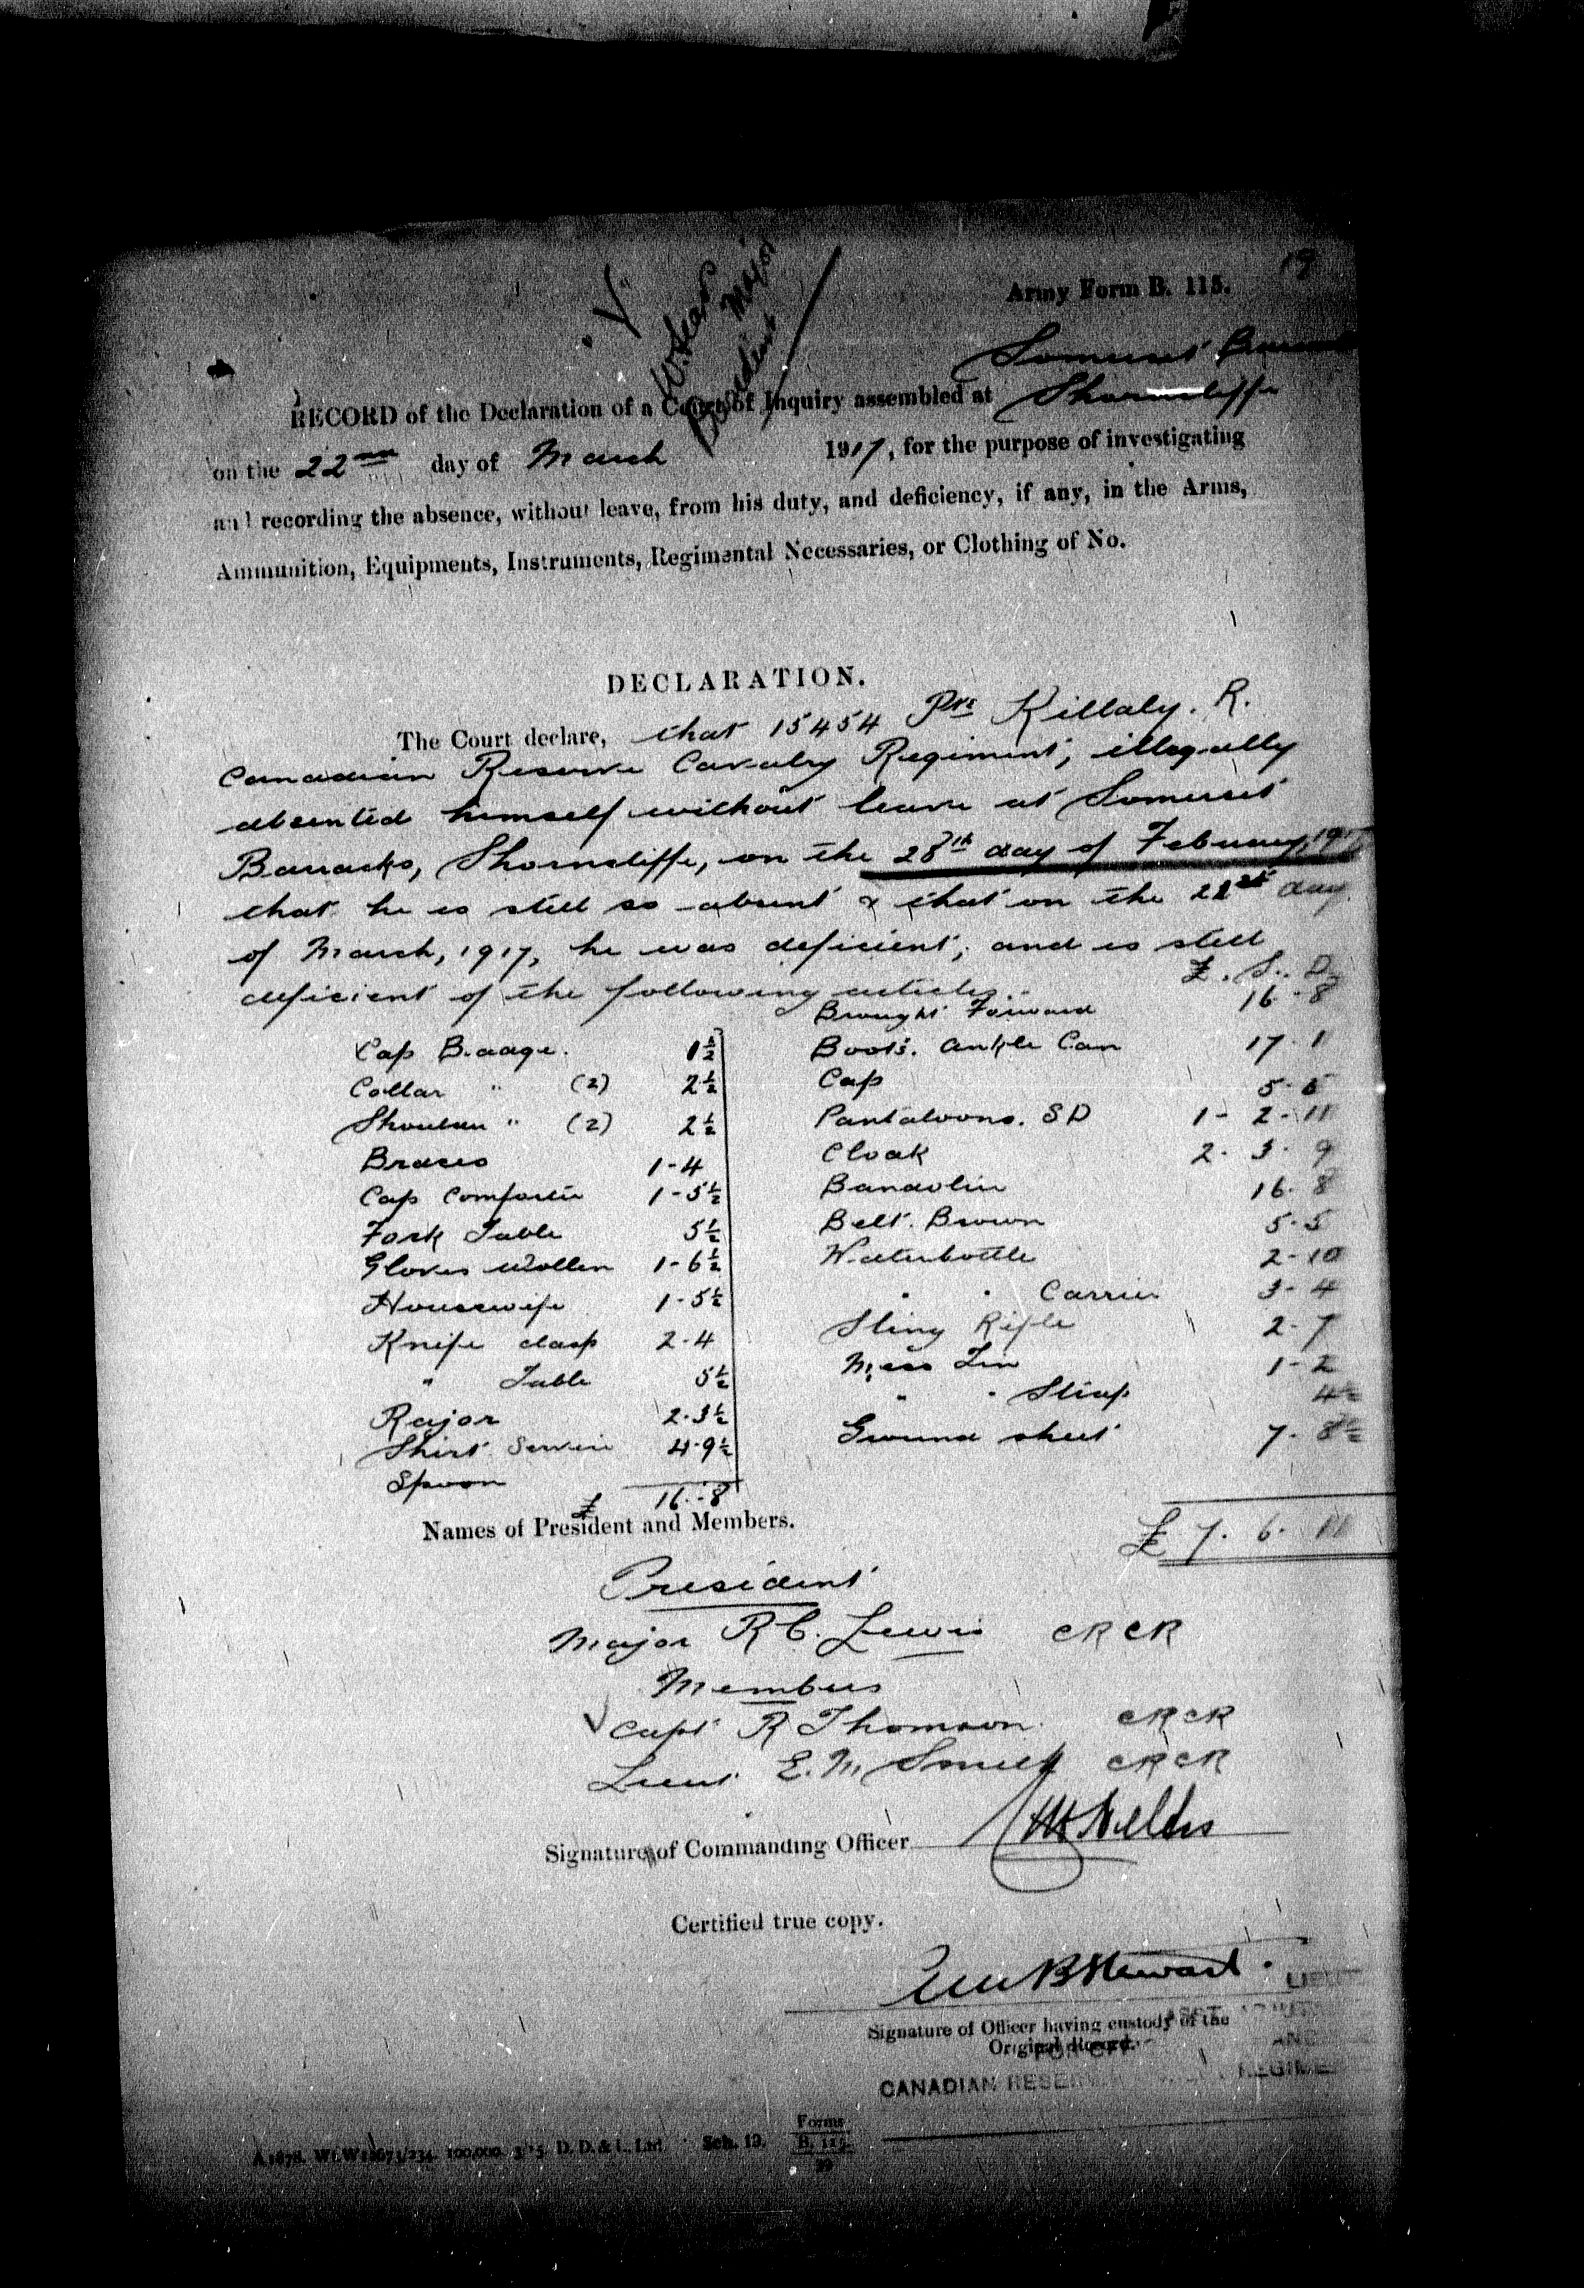 19
Army Form B. 115.
"V"
W. Sears
Major
President
Somerset
RECORD of the Declaration of a Court of Inquiry assembled at Shorncliffe
on the 22nd day of March 1917, for the purpose of investigating
and recording the absence, without leave, from his duty, and deficiency, if any, in the Arms,
Ammunition, Equipments, Instruments, Regimental Necessaries, or Clothing of No.
DECLARATION.
The Court declare, that 15454 Pte Killaly. R.
Canadian Reserve Cavalry Regiment, illegally
absented himself without leave at Somerset
Barracks, Shorncliffe, on the 28th day of February, 1917
that he is still so absent & that on the 22nd day
of March, 1917, he was deficient, and is still
deficient of the following articles.-
£. S. D.
Brought Forward 16-8
Cap Badge. 1½
Collar " (2) 2½
Shoulder " (2) 2½
Braces 1-4
Cap Comforter 1-5½
Fork Table 5½
Gloves Wollen 1-6½
Housewife 1-5½
Knife clasp 2-4
" Table 5½
Razor 2-3½
Shirt Service 4-9½
Spoon
£ 16-8
Boots. Ankle Can 17-1
Cap 5-5
Pantaloons. SD 1-2-11
Cloak 2-3-9
Bandolier 16-8
Belt. Brown 5-5
Waterbottle 2-10
" " Carrier 3-4
Sling Rifle 2-7
Mess Tin 1-2
" " Strap 4½
Ground sheet 7-8½
£ 7. 6. 11
Names of President and Members.
President
Major R C. Lewis CRCR
Members
Capt R Thomson. CRCR
Lieut. E. M. Smith CRCR
Signature of Commanding Officer
Certified true copy.
Stewart.
LIEUT
ASST. ADJUT
Signature of Officer having custody of the
Original Record.
CANADIAN RESERVE CAVALRY REGIMENT
Sch. 13. Forms
B. 115.